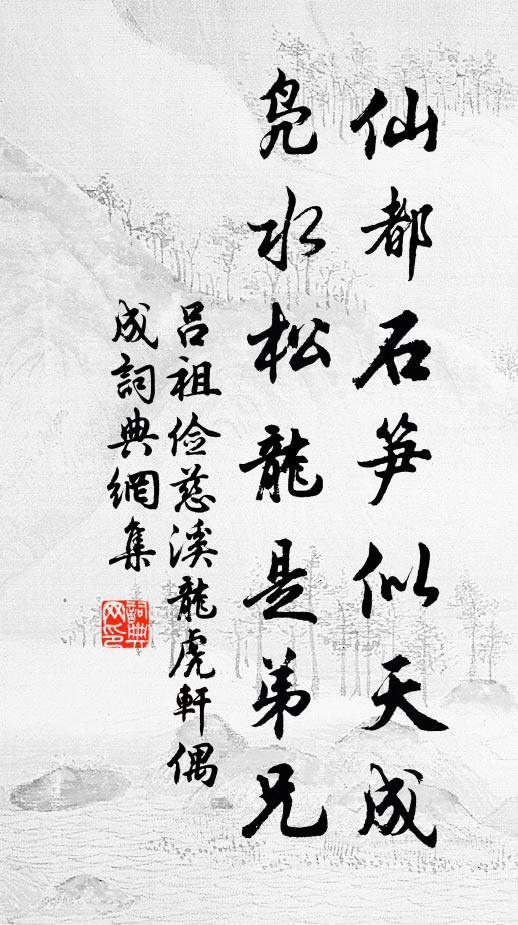 仙都石笋似天成
凫水松龍是弟兄
吕祖儉慈溪龍虎軒偶
成詞典網集
詞典网印